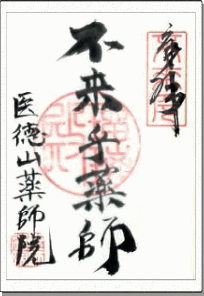 奉拝
不来乎薬師
医徳山薬師院